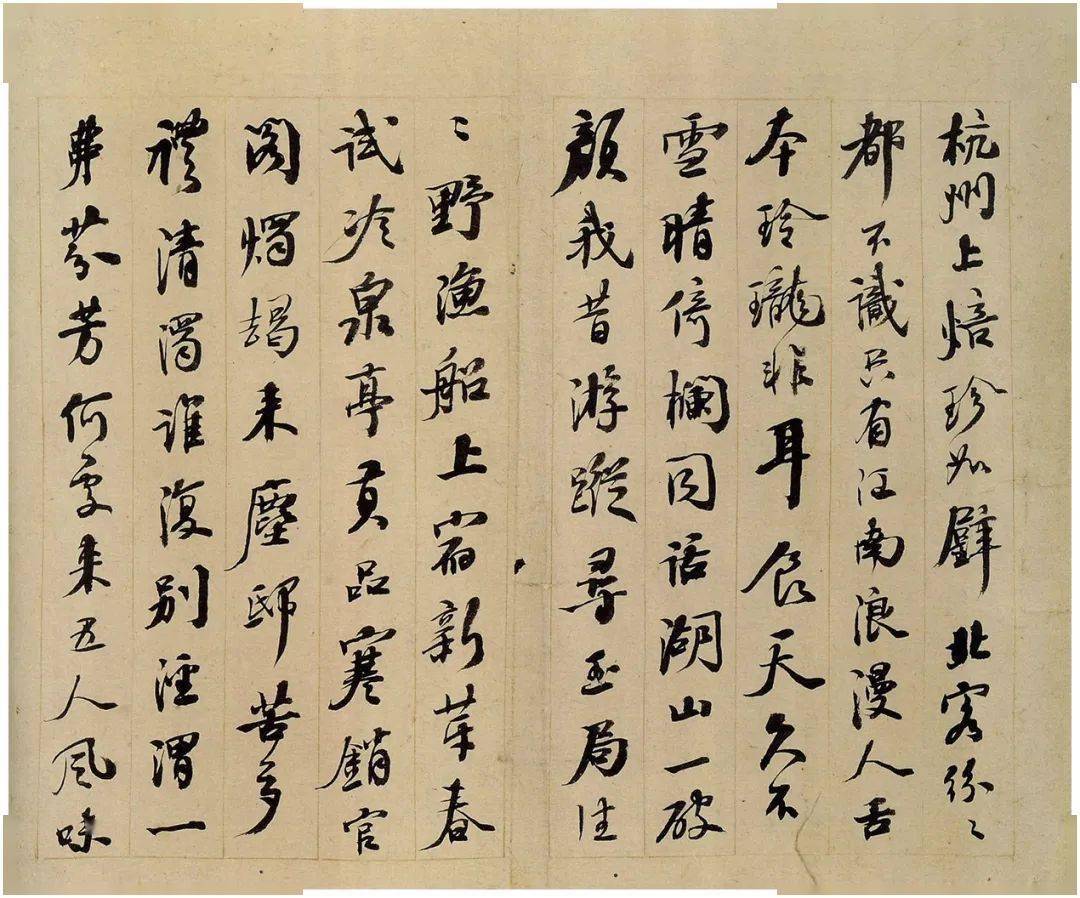 杭州上焙珍如璧北客紛〻
都不識只有江南浪漫人舌
本玲瓏非耳食天久不
雪晴倚欄同話湖山一破
顏我昔游蹤尋玉局往
〻野漁船上宿新芽春
試冷泉亭真品寒銷官
閣燭朅來塵邸苦多
禮清濁誰復別涇渭一
弗芬芳何處來五人風味